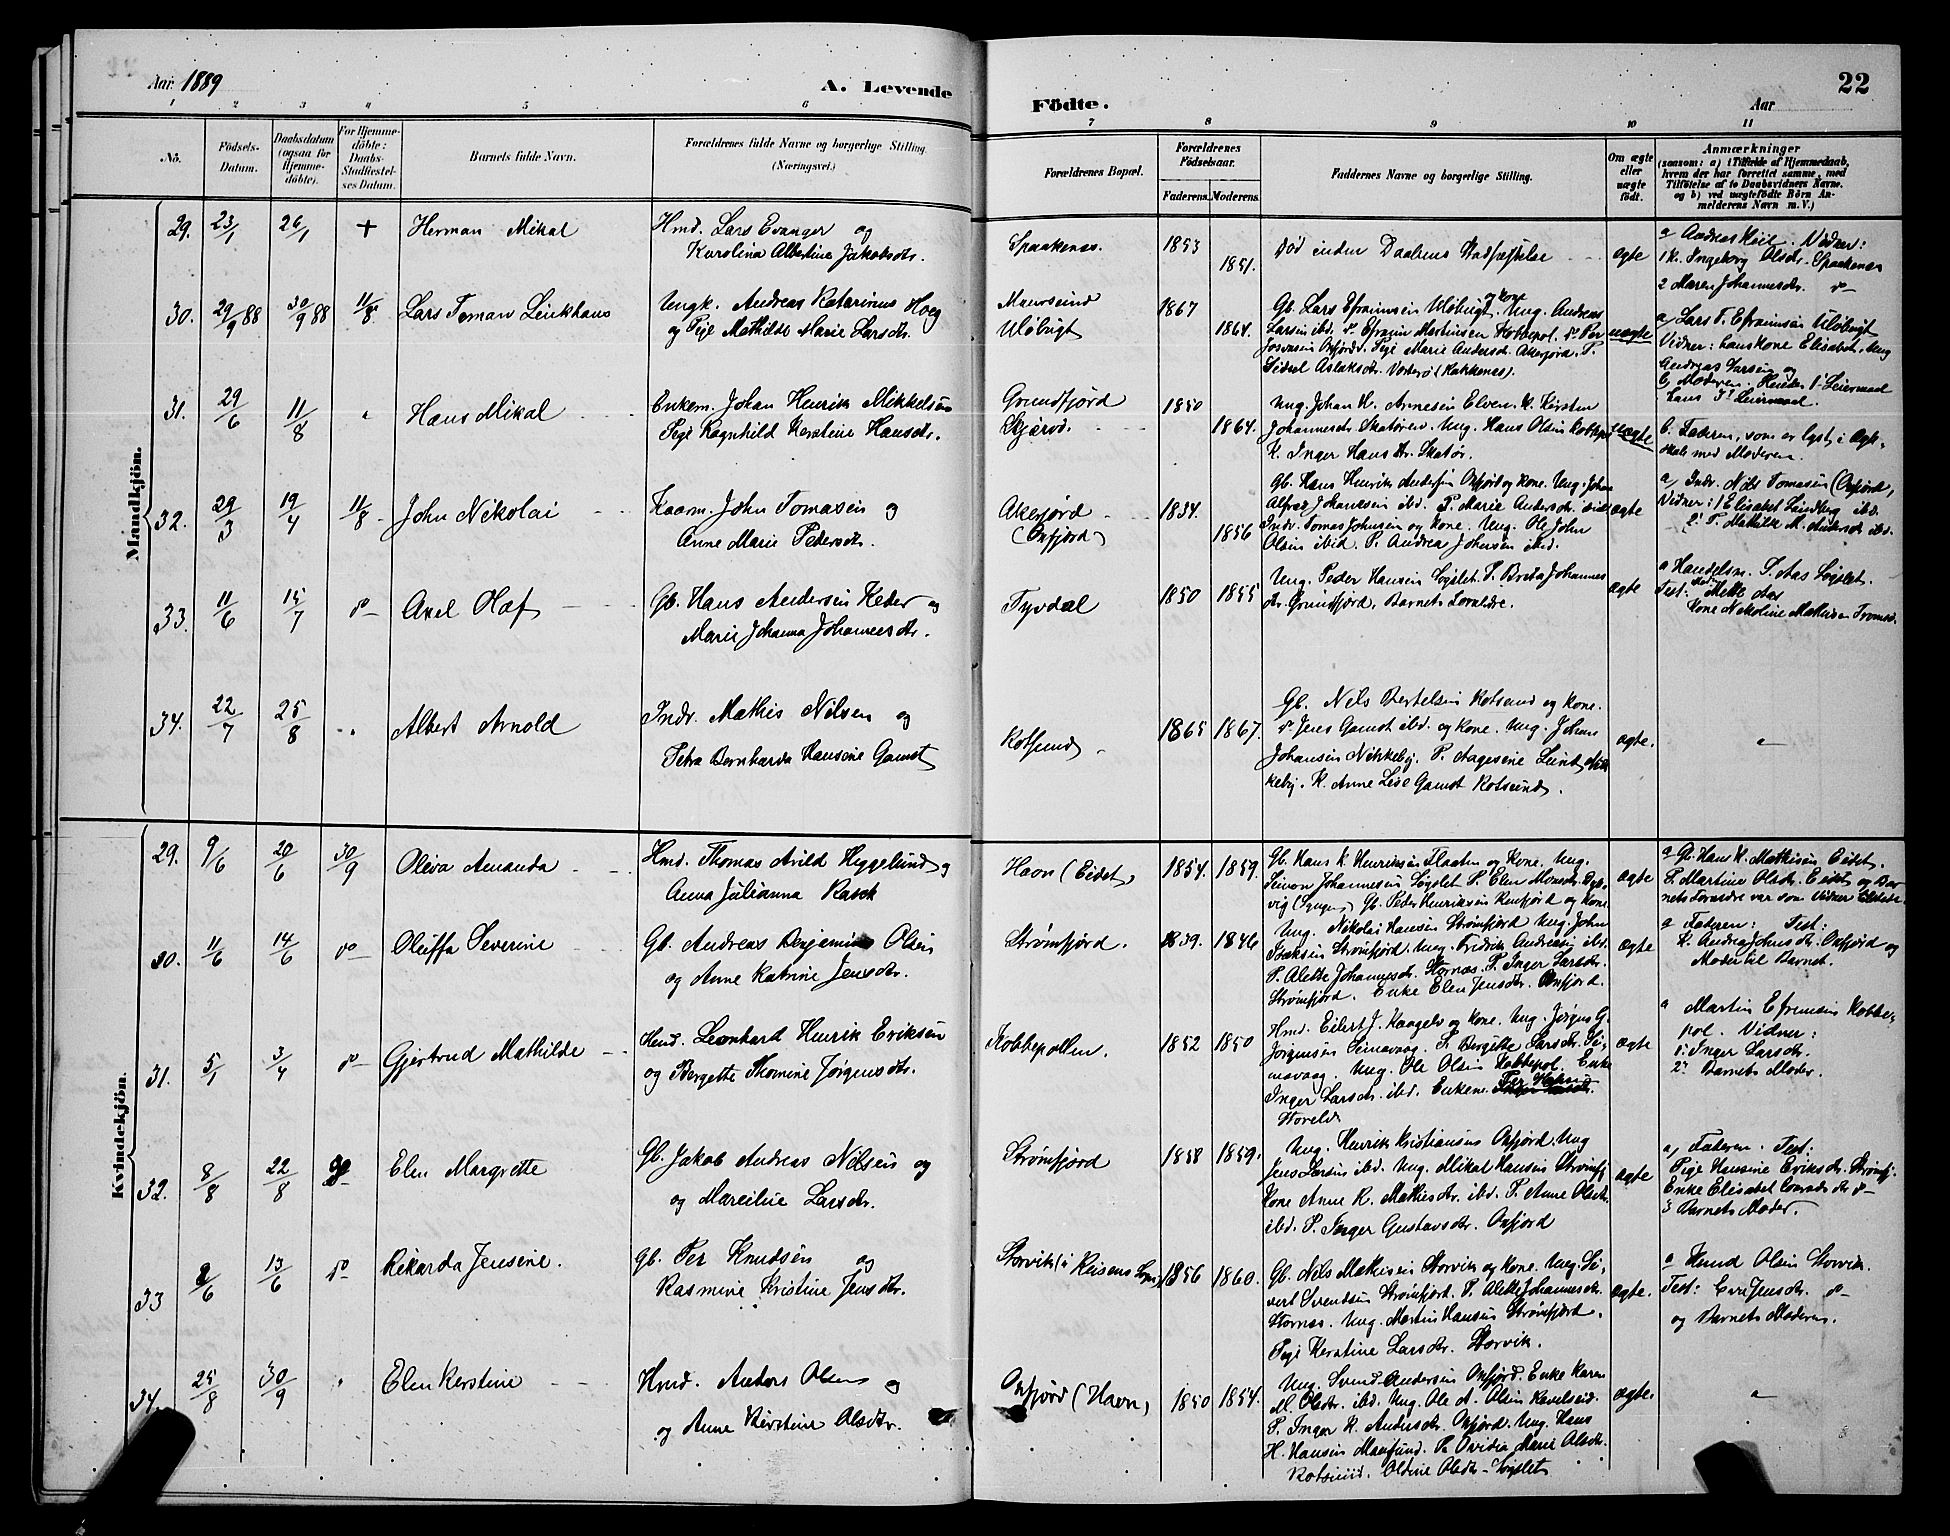 Aar 1889
A. Levende
Födte.
Aar
22
1 2 3 4 5 6 7 8 9 10 11
Nö.
Födsels-Datum.
Daabsdatum (ogsaa for Hjemme-döbte).
For Hjemme-döbte: Daabs-Stadfæstel-ses Datum.
Barnets fulde Navn.
Forældrenes fulde Navne og borgerlige Stilling.
(Næringsvei.)
Forældrenes Bopæl.
Forældrenes Födselsaar.
Faderens. Moderens.
Faddernes Navne og borgerlige Stilling.
Om ægte eller uægte födt.
Anmærkninger
(saasom: a) i Tilfælde af Hjemmedaab, hvem der har forrettet samme, med Tilföielse af to Daabsvidners Navne, og b) ved uægtefödte Börn An-melderens Navn m. V.)
Mandkjön.
29. 23/1 26/1 + Herman Mikal
Hmd. Lars Evanger og
Karolina Albertine Jakobsdtr.
Spaakenes. 1853 1851.
Död inden Daabens Stadfæstelse ægte
a Andreas Keil. Vidner:
1 K. Ingeborg Olsdtr. Spaakenes
2 Maren Johannesdtr. do
30. 29/9 88 30/9 88 11/8 Lars Toman Leukhaus
Ungk. Andreas Katarinus Hoeg
og Pige Mathilde Marie Larsdtr.
Maursund
Ulöbugt
1867 1864.
Gb. Lars Efraimsen Ulöbugt og Kone. Ung. Andreas
Larsen ibd. do Efraim Martinsen Kobbepol. do Per
Josvasen Oxfjord. Pige Marie Andersdr. Akerjord. P.
Sidsel Aslaksdr. Vorterö (Kakkenes).
uægte
a, Lars T. Efraimsen Ulöbugt
Vidner: hans Kone Elisabet, Ung
Andreas Larsen og
b, Moderen. Hendes 1' Leiermaal
hans 1' Leiermaal.
31. 29/6 11/8 " Hans Mikal
Enkem. Johan Henrik Mikkelsen
Pige Ragnhild Kerstine Hansdtr.
Grundfjord
Skjervö.
1850 1864.
Ung. Johan H. Arnesen Elven. K. Kersten
Johannesdr. Skatören. Ung. Hans Olsen Kobbepol
K. Inger Hansdtr. Skatör.
uægte
b. Faderen, som er lyst i Ægte-
skab med Moderen.
32. 29/3 19/4 11/8 John Nikolai
Kaarm. John Tomasen og
Anne Marie Pedersdtr.
Akerjord
(Oxfjord)
1834 1856
Gb. Hans Henrik Andersen Oxfjord og Kone. Ung. Johan
Alfred Johansen ibd. P. Marie Andersdr. ibid
Indr. Tomas Johnsen og Kone. Ung. Ole John
Olsen ibid. P. Andrea Johnsen ibd.
ægte
a, Indr. Nils Tomasen (Oxfjord)
Vidner: 1 Elisabet Lindberg ibd.
2' P. Mathilde M. Andersdr ibd.
33. 11/6 15/7 do Axel Olaf
Gb. Hans Andersen Keder og
Marie Johanna Johannesdtr.
Tyvdal 1850 1855
Ung. Peder Hansen Sögslet. P. Brita Johannes
dr. Grundfjord. Barnets Forældre.
ægte
a Handelsm. S. Aas Sögslet.
Test: Mette Aas
Kone Nikoline Mathisen Tromsö.
34. 22/7 25/8 " Albert Arnold
Indr. Mathis Nilsen og
Petra Bernharda Hansine Gamst
Rotsund 1865 1867.
Gb. Nils Bertelsen Rotsund og Kone.
do Jens Gamst ibd. og Kone. Ung. Johan
Johansen Nikkeby. P. Aagesine Lund Nik
keby. K. Anne Lise Gamst Rotsund.
ægte. "
Kvindekjön.
29. 9/6 20/6 30/9 Oliva Amanda
Hmd. Thomas Arild Hyggelund og
Anna Julianna Rasch
Havn (Eidet) 1854. 1859.
Gb. Hans K. Henriksen Flaaten og Kone. Ung.
Simon Johannesen Sögslet P. Elen Monsdr. Dyb-
vig (Lyngen) Gb. Peder Henriksen Renfjord og Kone
ægte
a Gb. Hans H. Mathisen Eidet.
P. Martine Olsdr. Eidet og Bar
nets Forældre var som Vidner tilstede.
30. 11/6 14/6 do Oluffa Severine
Gb. Andreas Benjamin Olsen
og Anne Katrine Jensdr.
Strömfjord. 1839. 1846
Ung. Nikolai Hansen Strömfjord Ung. John
Isaksen Strömfjord. Ung. Fredrik Andreasen ibd.
P. Alette Johannesdr. Stornes. P. Inger Larsdr.
Strömfjord. Enke Elen Jensdr. Oxfjord.
ægte
a Faderen: Test:
K. Andrea Johnsdr. Oxfjord og
Moder til Barnet.
31. 5/1 3/4 do Gjertrud Mathilde
Hmd. Leonhard Henrik Eriksen
og Bergette Thomine Jörgensdtr.
Kobbepollen. 1852 1850
Hmd. Eilert J. Kaagelv og Kone. Ung. Jörgen G.
Jörgensen Simavaag. P. Bergette Larsdr. Si-
mavaag. Ung. Ole Olsen Kobbepol. Enke
Inger Larsdr. ibd. Enkem. Per Hansen
Storeld
ægte
a Martin Efremsen Kobbe-
pol. Vidner:
1' Inger Larsdr.
2' Barnets Moder.
32. 8/8 22/8 do Elen Margrette
Gb. Jakob Andreas Nilsen og
og Mareilie Larsdtr.
Strömfjord 1858 1859.
Ung. Henrik Kristiansen Oxfjord. Ung
Jens Larsen ibd. Ung. Mikal Hansen Strömfj.
Kone Anne K. Mathisdtr. ibd. P. Anne Olsdtr.
ibd. P. Inger Gustavsdtr. Oxfjord
ægte
a, Faderen. Test:
Pige Hansine Eriksdtr. Strömfj.
Enke Elisabet Conradsdtr do
3 Barnets Moder.
33 2/6 13/6 do Rikarda Jensine.
Gb. Per Knudsen og
Rasmine Kristine Jensdtr.
Storvik (i Reisens Sogn) 1856 1860.
Gb. Nils Mathisen Storvik og Kone. Ung. Si-
vert Svendsen Strömfjord. P. Alette Johannesdr.
Stornes. Ung. Martin Hansen Strömfjord.
Pige Kerstine Larsdtr. Storvik.
ægte.
a Knud Olsen Storvik.
Test: Eva Jensdtr. do
og Barnets Moderen.
34. 25/8 30/9 " Elen Kerstine
Hmd. Anders Olsen og
og Anne Kirstine Olsdtr.
Oxfjord (Havn) 1850 1854.
Ung. Svend Andersen Oxfjord. Enke Karen
M. Olsdtr. ibd. Ung. Ole A. Olsen Ravelseid.
P. Inger K. Andersdr. Oxfjord. Ung. Hans
H. Hansen Maursund. P. Ovidia Marie Olsdtr.
Rotsund. Oldine Olsdtr. Sögslet
ægte. "